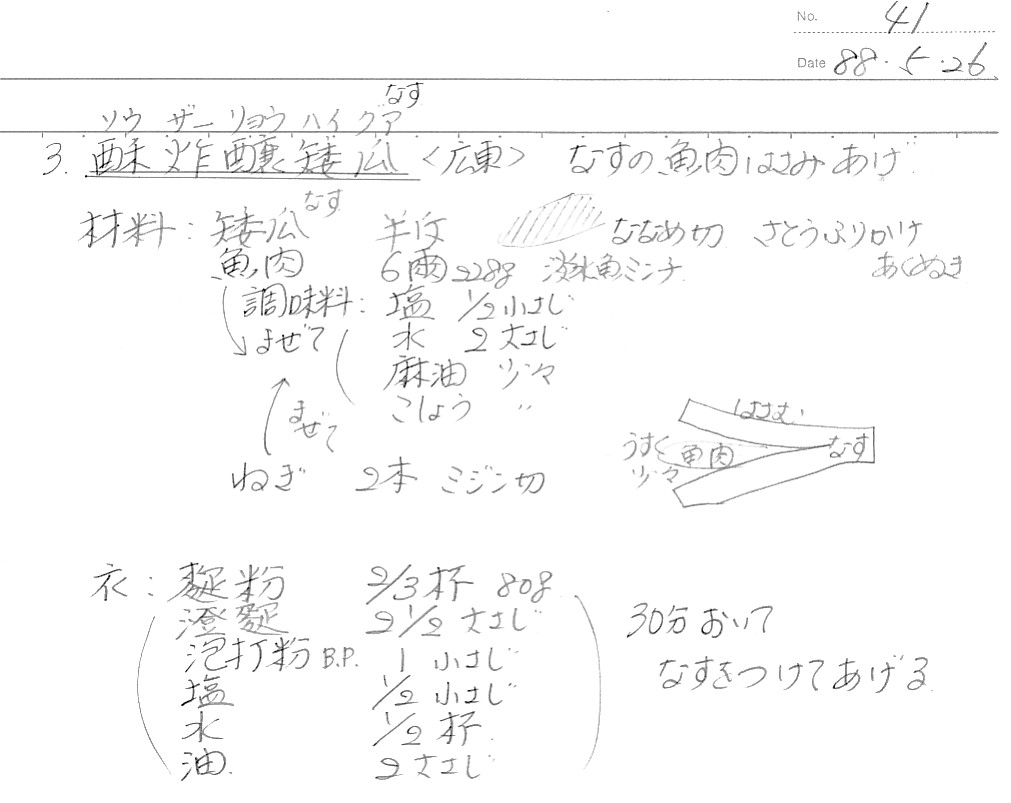 No. 41
Date 88・5・26
なす
ソウ ザー リョウ ハイ クア
3. 酥炸釀矮瓜 〈広東〉 なすの魚肉はさみあげ
なす
材料: 矮瓜 半斤 ななめ切 さとうふりかけ
あくぬき
魚肉 6兩 228g 淡水魚ミンチ
調味料: 塩 1/2 小さじ
まぜて 水 2 大さじ
麻油 少々
こしょう 〃
まぜて
ねぎ 2本 ミジン切
はさむ
うすく 魚肉 なす
少々
衣: 麵粉 2/3杯 80g
澄麵 2 1/2 大さじ
泡打粉 B.P. 1 小さじ
塩 1/2 小さじ
水 1/2 杯
油 2 大さじ
30分おいて
なすをつけてあげる